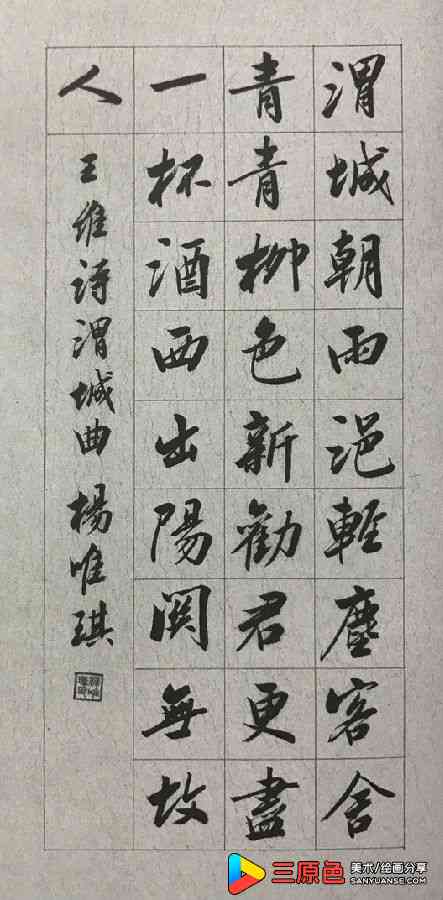 渭城朝雨浥輕塵客舍
青青柳色新勸君更盡
一杯酒西出陽関無故
人
王維詩渭城曲楊唯琪
三原色 美术/绘画分享
SANYUANSE.COM